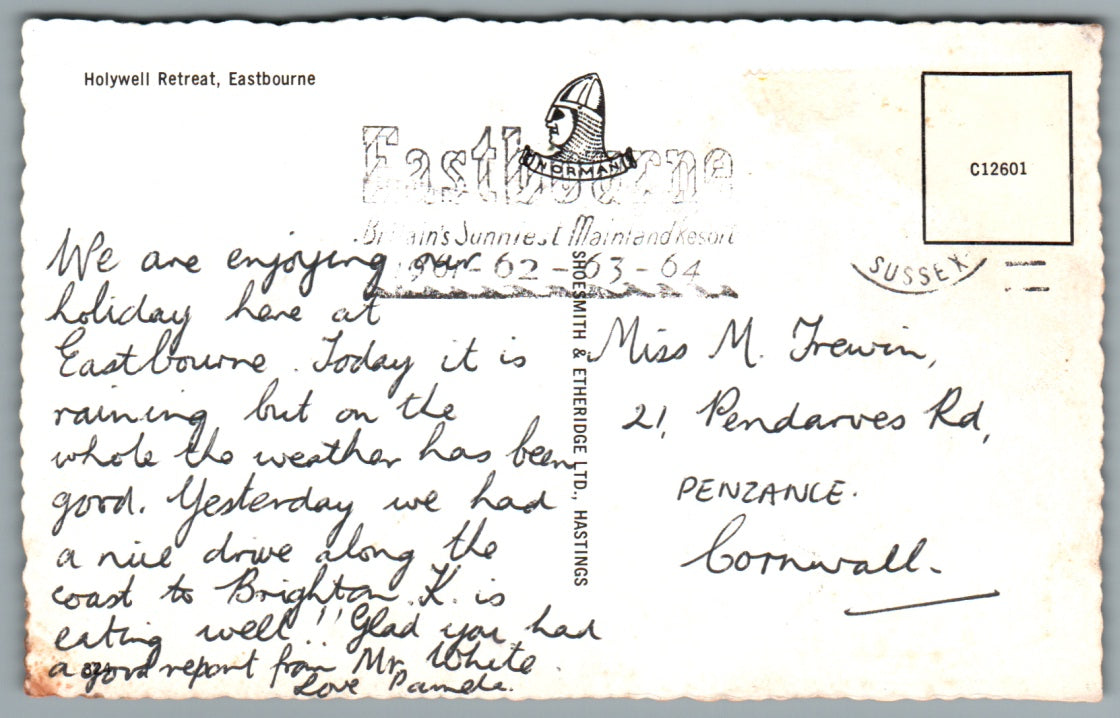 Holywell Retreat, Eastbourne
NORMAN
C12601
Eastbourne
Britain's Sunniest Mainland Resort
1961-62-63-64
SUSSEX
We are enjoying our
holiday here at
Eastbourne. Today it is
raining but on the
whole the weather has been
good. Yesterday we had
a nice drive along the
coast to Brighton. K. is
eating well!! Glad you had
a good report from Mr. White.
Love Pamela.
SHOESMITH & ETHERIDGE LTD., HASTINGS
Miss M. Trewin,
21, Pendarves Rd,
PENZANCE.
Cornwall.